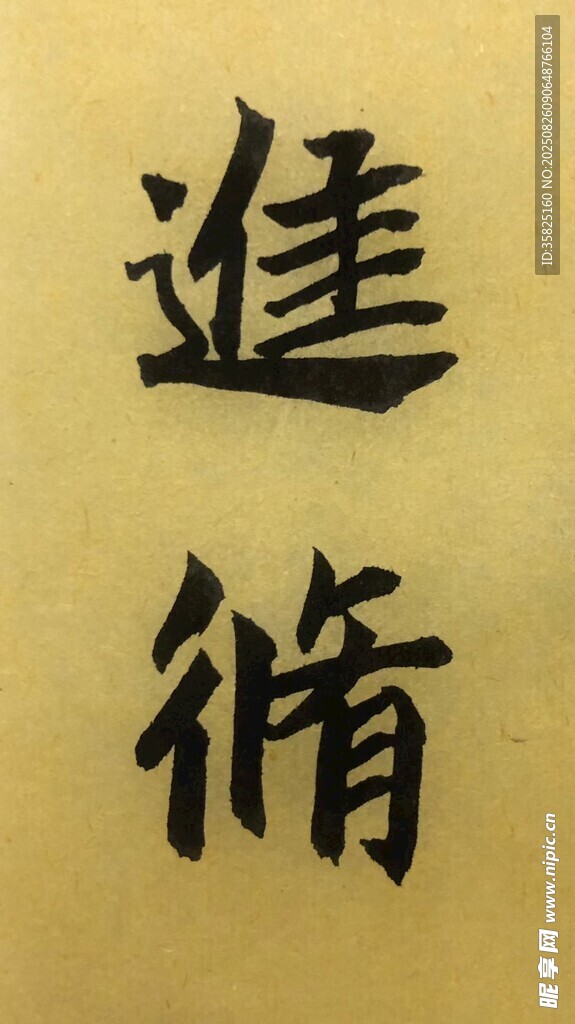 進
脩
ID:35825160 NO:20250826090648766104
昵享网 www.nipic.cn